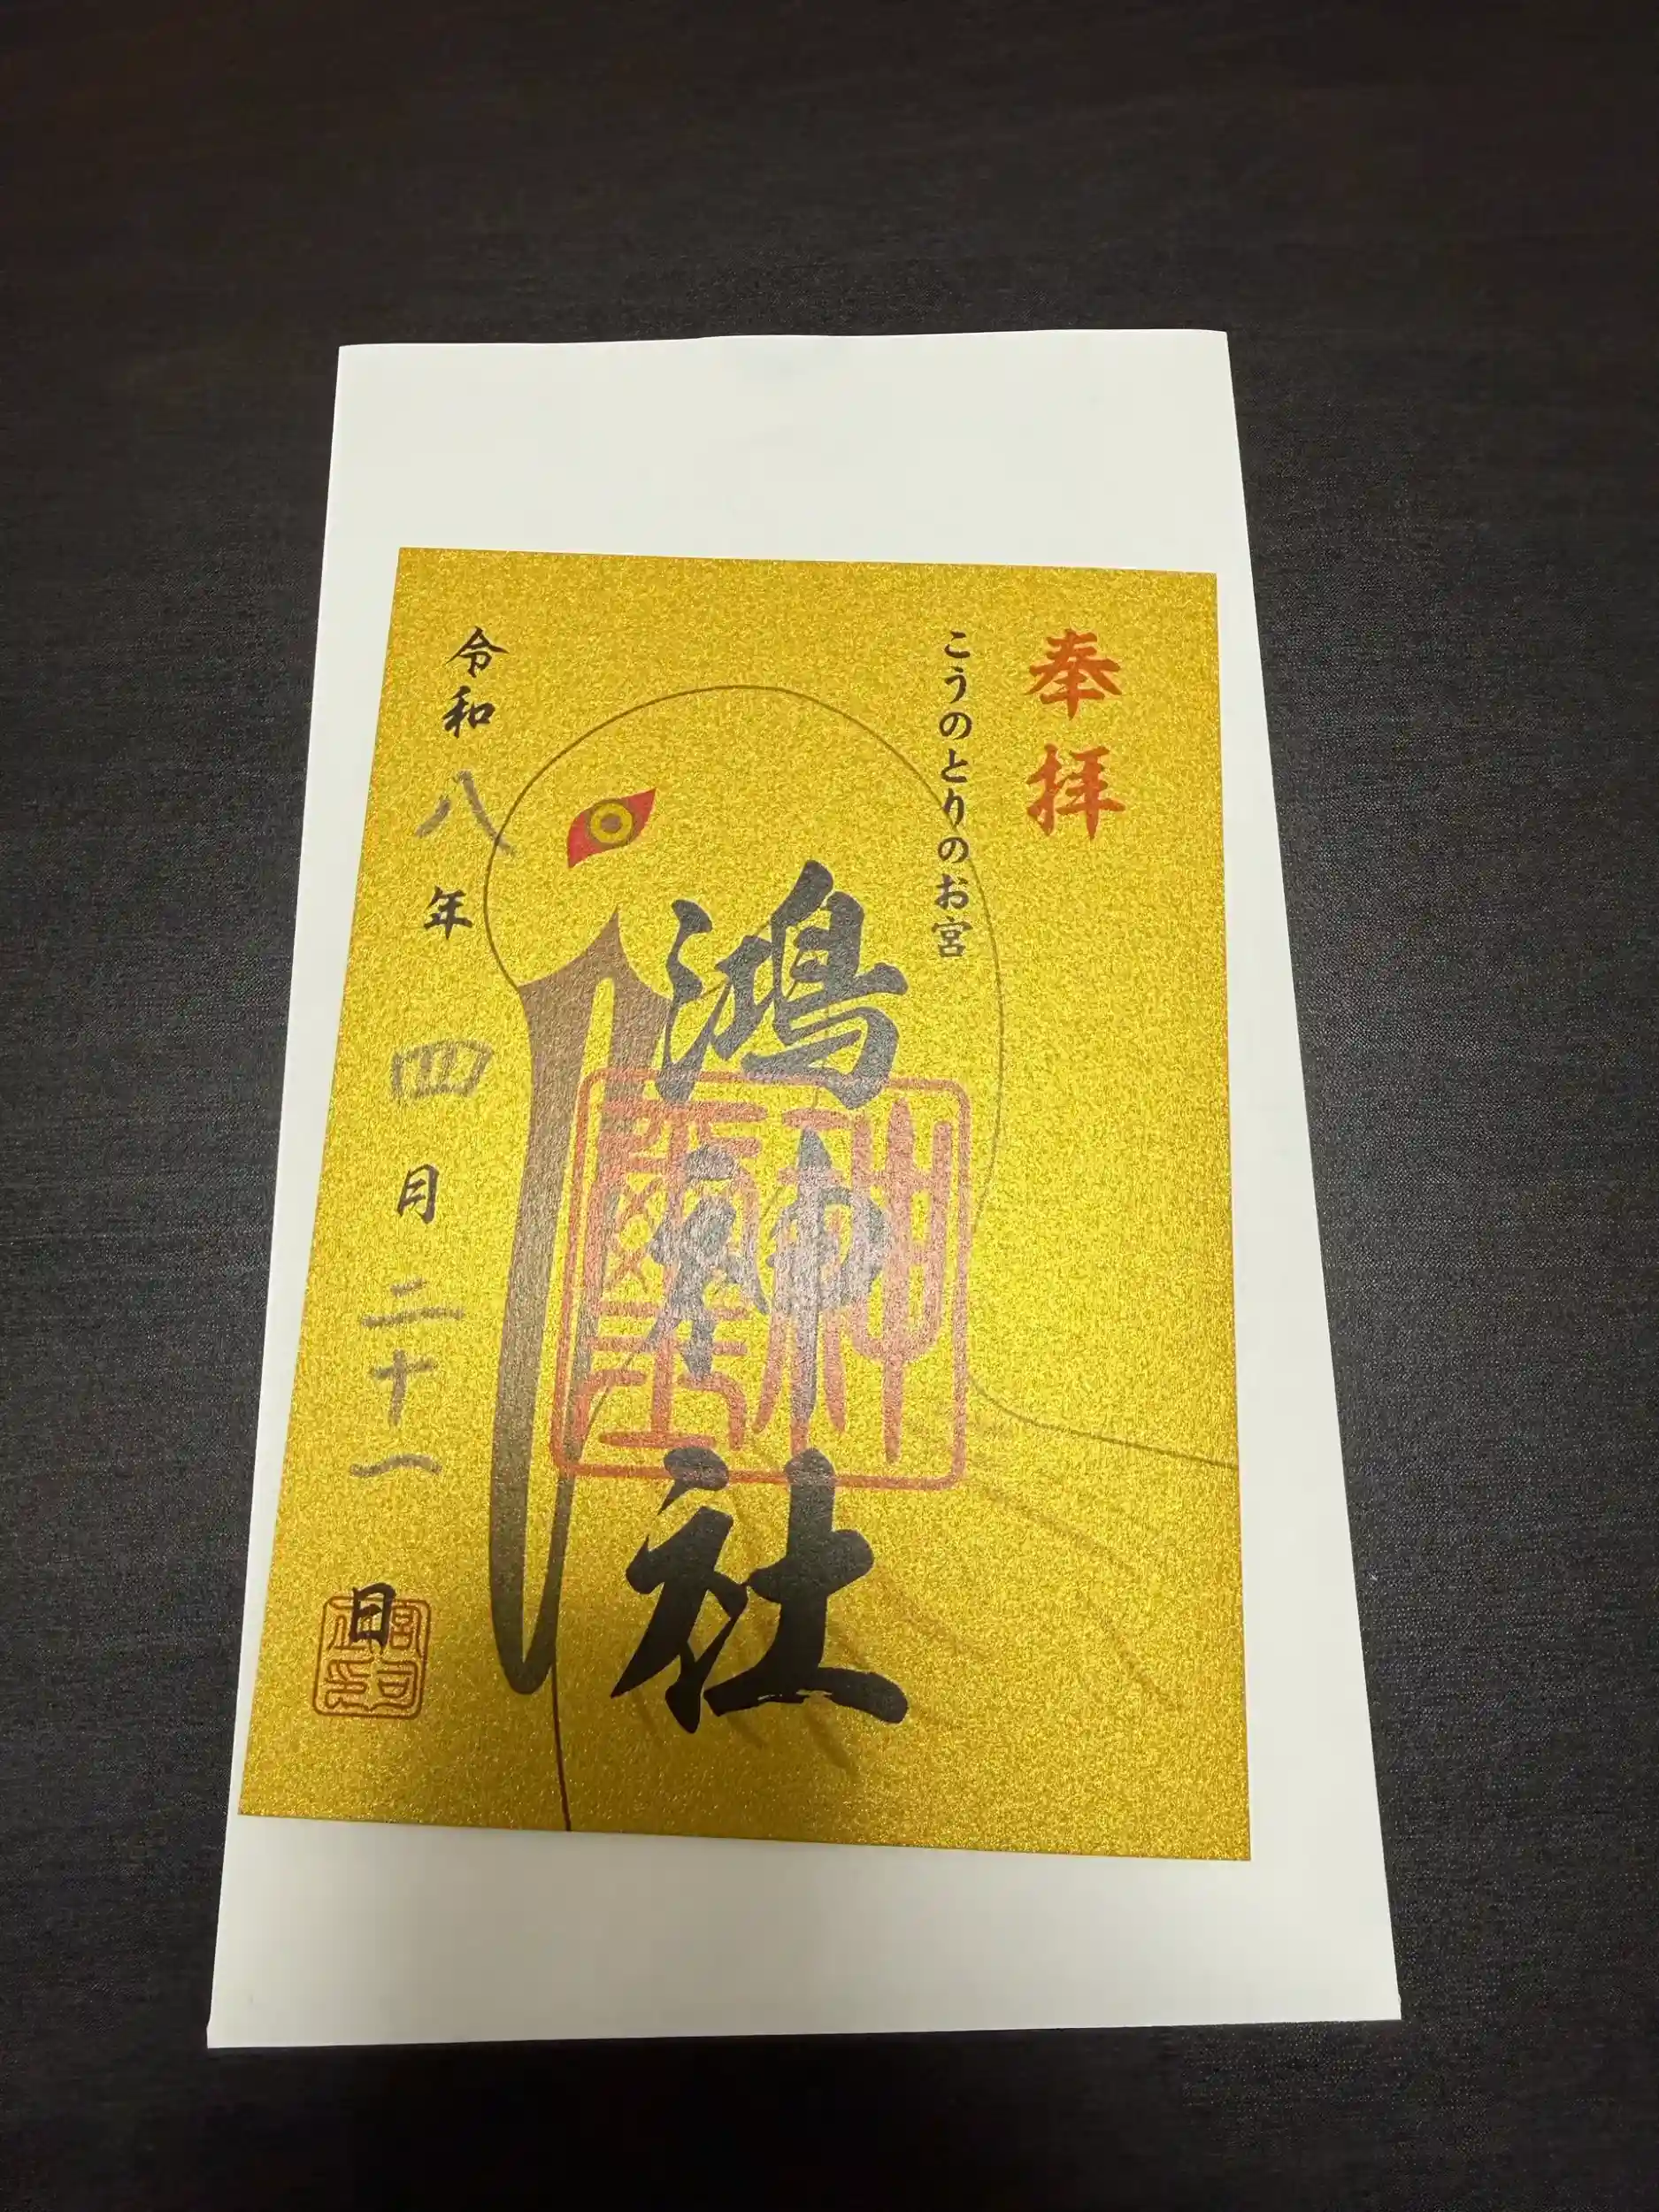 奉拝
こうのとりのお宮
鴻神社
神璽
令和八年四月二十一日